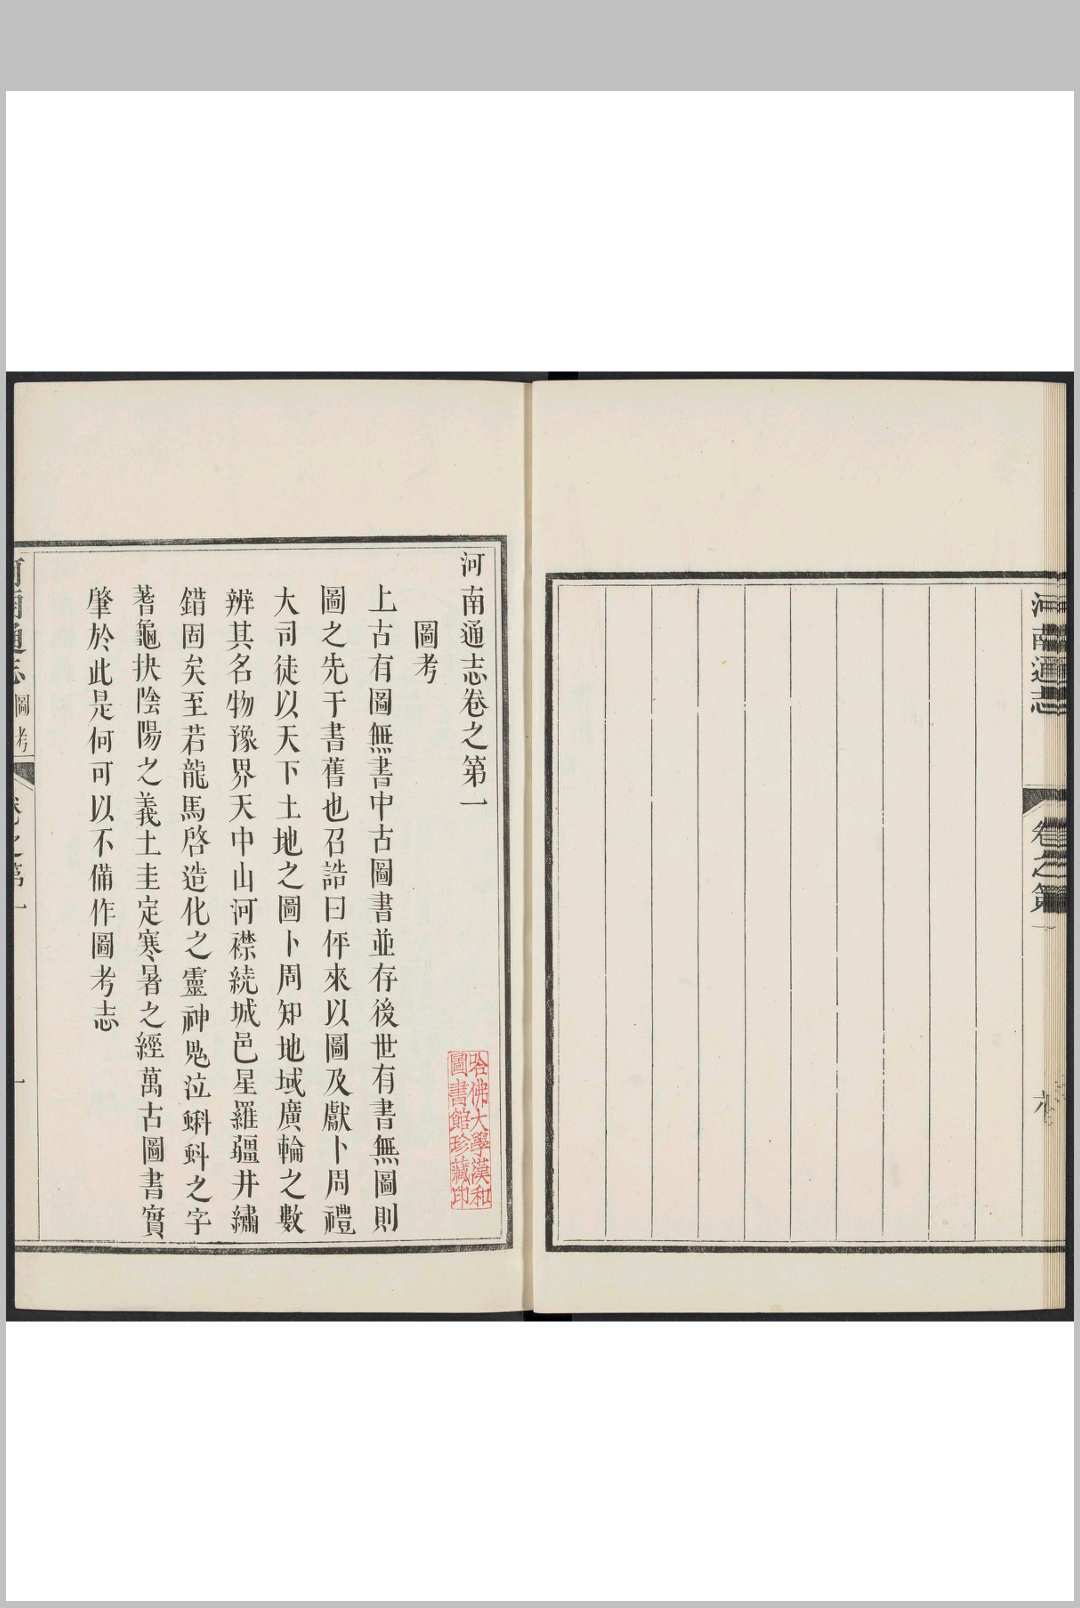 河南通志
卷之第一
六
河南通志卷之第一
圖考
上古有圖無書中古圖書並存後世有書無圖則
圖之先于書舊也召誥曰伻來以圖及獻卜周禮
大司徒以天下土地之圖卜周知地域廣輪之數
辨其名物豫界天中山河襟繞城邑星羅疆井繡
錯固矣至若龍馬啓造化之靈神鬼泣蝌蚪之字
蓍龜抉陰陽之義土圭定寒暑之經萬古圖書實
肇於此是何可以不備作圖考志
哈佛大學漢和
圖書館珍藏印
河南通志
圖考
卷之第一
一